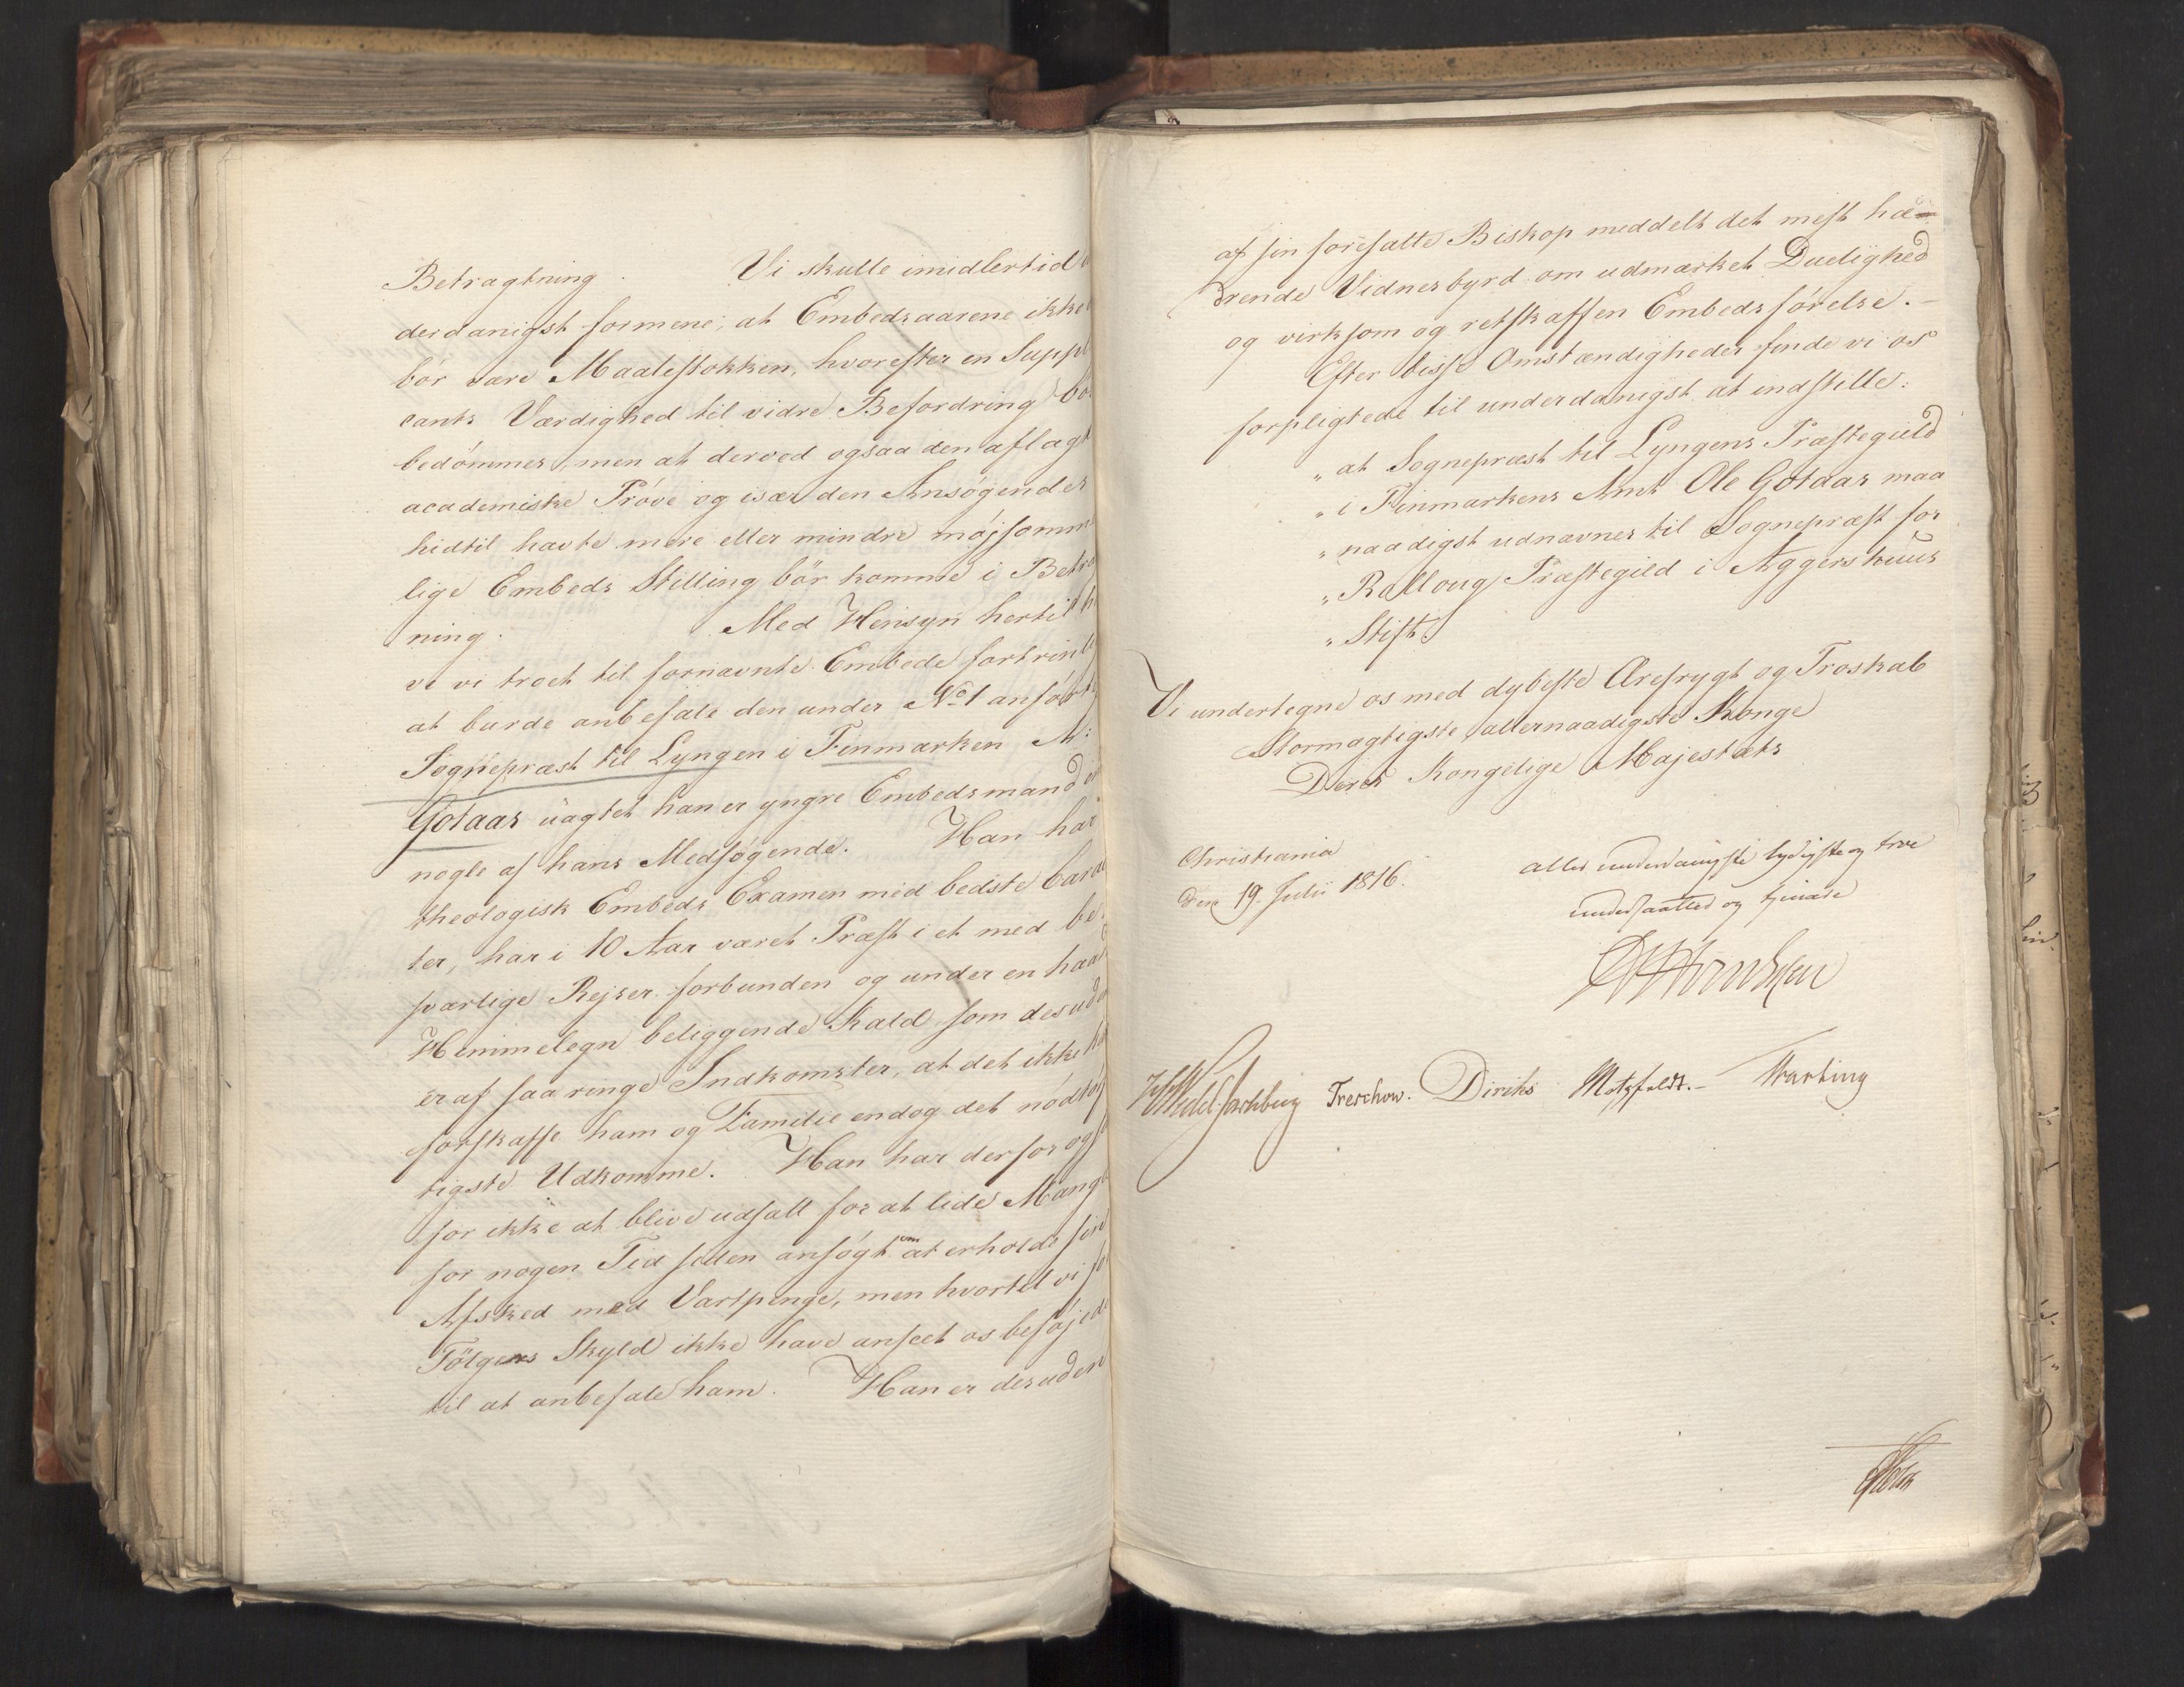 Betragtning. Vi skulle imidlertid
derdanigst formene, at Embedsaarene ikke
bör være Maalestokken, hvorefter en Suppl
cants Værdighed til vidre Befordring bö
bedömmes, men at derved ogsaa den aflagt
academiske Pröve og især den Ansøgendes
hidtil havte mere eller mindre møjsomm
lige Embeds Stilling bör komme i Betra
ning. Med Hensyn hertil h
ve vi troet til fornævnte Embede fortrinli
at burde anbefale den under No 1 anförte
Sognepræst til Lyngen i Finmarken M:
Gotaas uagtet han er yngre Embedsmand
nogle af hans Medsøgende. Han har
theologisk Embeds Examen med bedste Carac
ter, har i 10 Aar været Præst i et med be
sværlige Rejser forbunden og under en haard
Himmelegn beliggende Kald som desude
er af saa ringe Indkomster, at det ikke ka
forskaffe ham og Familie endog det nødtöf
tigste Udkomme. Han har derfor ogsa
for ikke at blive udsatt for at lide Mange
for nogen Tid siden ansøgt om at erholde sin
Afsked med Vartpenge, men hvortil vi fo
Fölgens Skyld ikke have anseet os beføjede
til at anbefale ham. Han er desuden
af sin foresatte Biskop meddelt det mest hæ
drende Vidnesbyrd om udmærket Duelighed
og virksom og retskaffen Embedsförelse.
Efter disse Omstændigheder finde vi os
forpligtede til underdanigst at indstille:
"at Sognepræst til Lyngens Præstegield
"i Finmarkens Amt Ole Gotaas maa
"naadigst udnævnes til Sognepræst for
"Rolloug Præstegield i Aggershuus
"Stift
Vi undertegne os med dybeste Ærefrygt og Troskab
Stormægtigste, allernaadigste Konge
Deres Kongelige Majestæts
Christiania
den 19 Julii 1816.
aller underdanigste lydigste og troe
undersaatter og tjenere
Treschow. Diriks Motzfeldt.